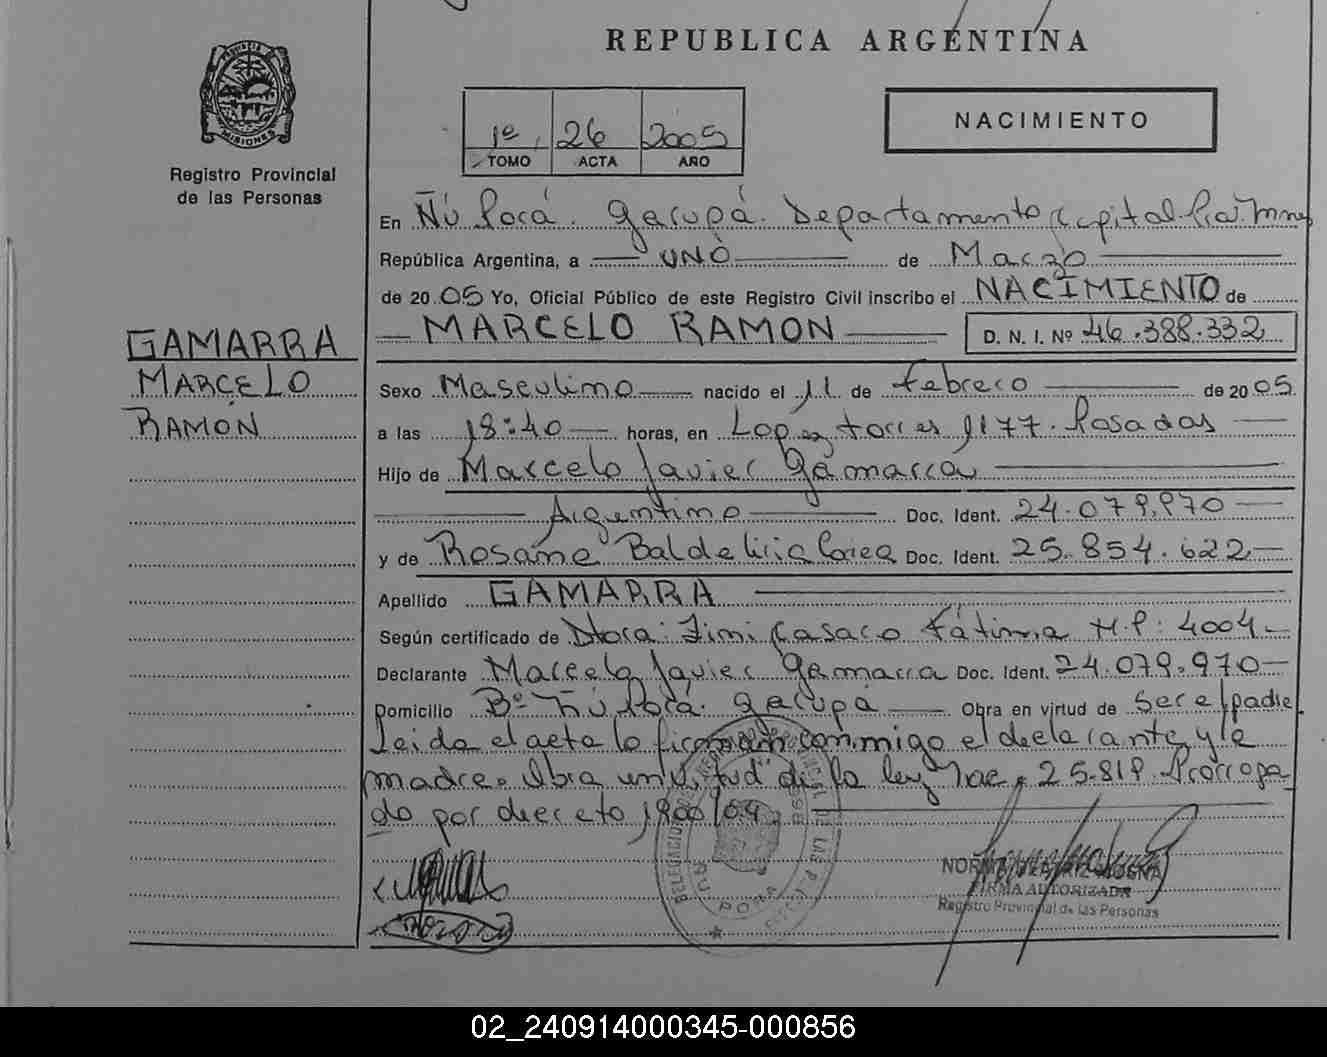 REPUBLICA ARGENTINA
PROVINCIA DE MISIONES
Registro Provincial
de las Personas
1º 26 2005
TOMO ACTA AÑO
NACIMIENTO
En Ñú Porá. Garupá. Departamento Capital. Pcia. Mnes
República Argentina, a UNO de Marzo
de 2005 Yo, Oficial Público de este Registro Civil inscribo el NACIMIENTO de
MARCELO RAMON D. N. I. Nº 46.388.332
GAMARRA
MARCELO
RAMÓN
Sexo Masculino nacido el 11 de febrero de 2005
a las 18:40 horas, en Lopez torres 1177. Posadas
Hijo de Marcelo Javier Gamarra
Argentino Doc. Ident. 24.079.970
y de Rosana Doc. Ident. 25.854.622
Apellido GAMARRA
Según certificado de Dtora: Fátima M.P: 4004
Declarante Marcelo Javier Gamarra Doc. Ident. 24.079.970
Domicilio Bº Ñú Porá. Garupá Obra en virtud de Ser el padre
Leida el acta lo firman conmigo el declarante y la
madre. Obra en virtud de la ley Nac. 25.819. Prorroga
do por decreto 1800/04
DELEGACION ÑU PORA
NORMA BEATRIZ
FIRMA AUTORIZADA
Registro Provincial de las Personas
02_240914000345-000856